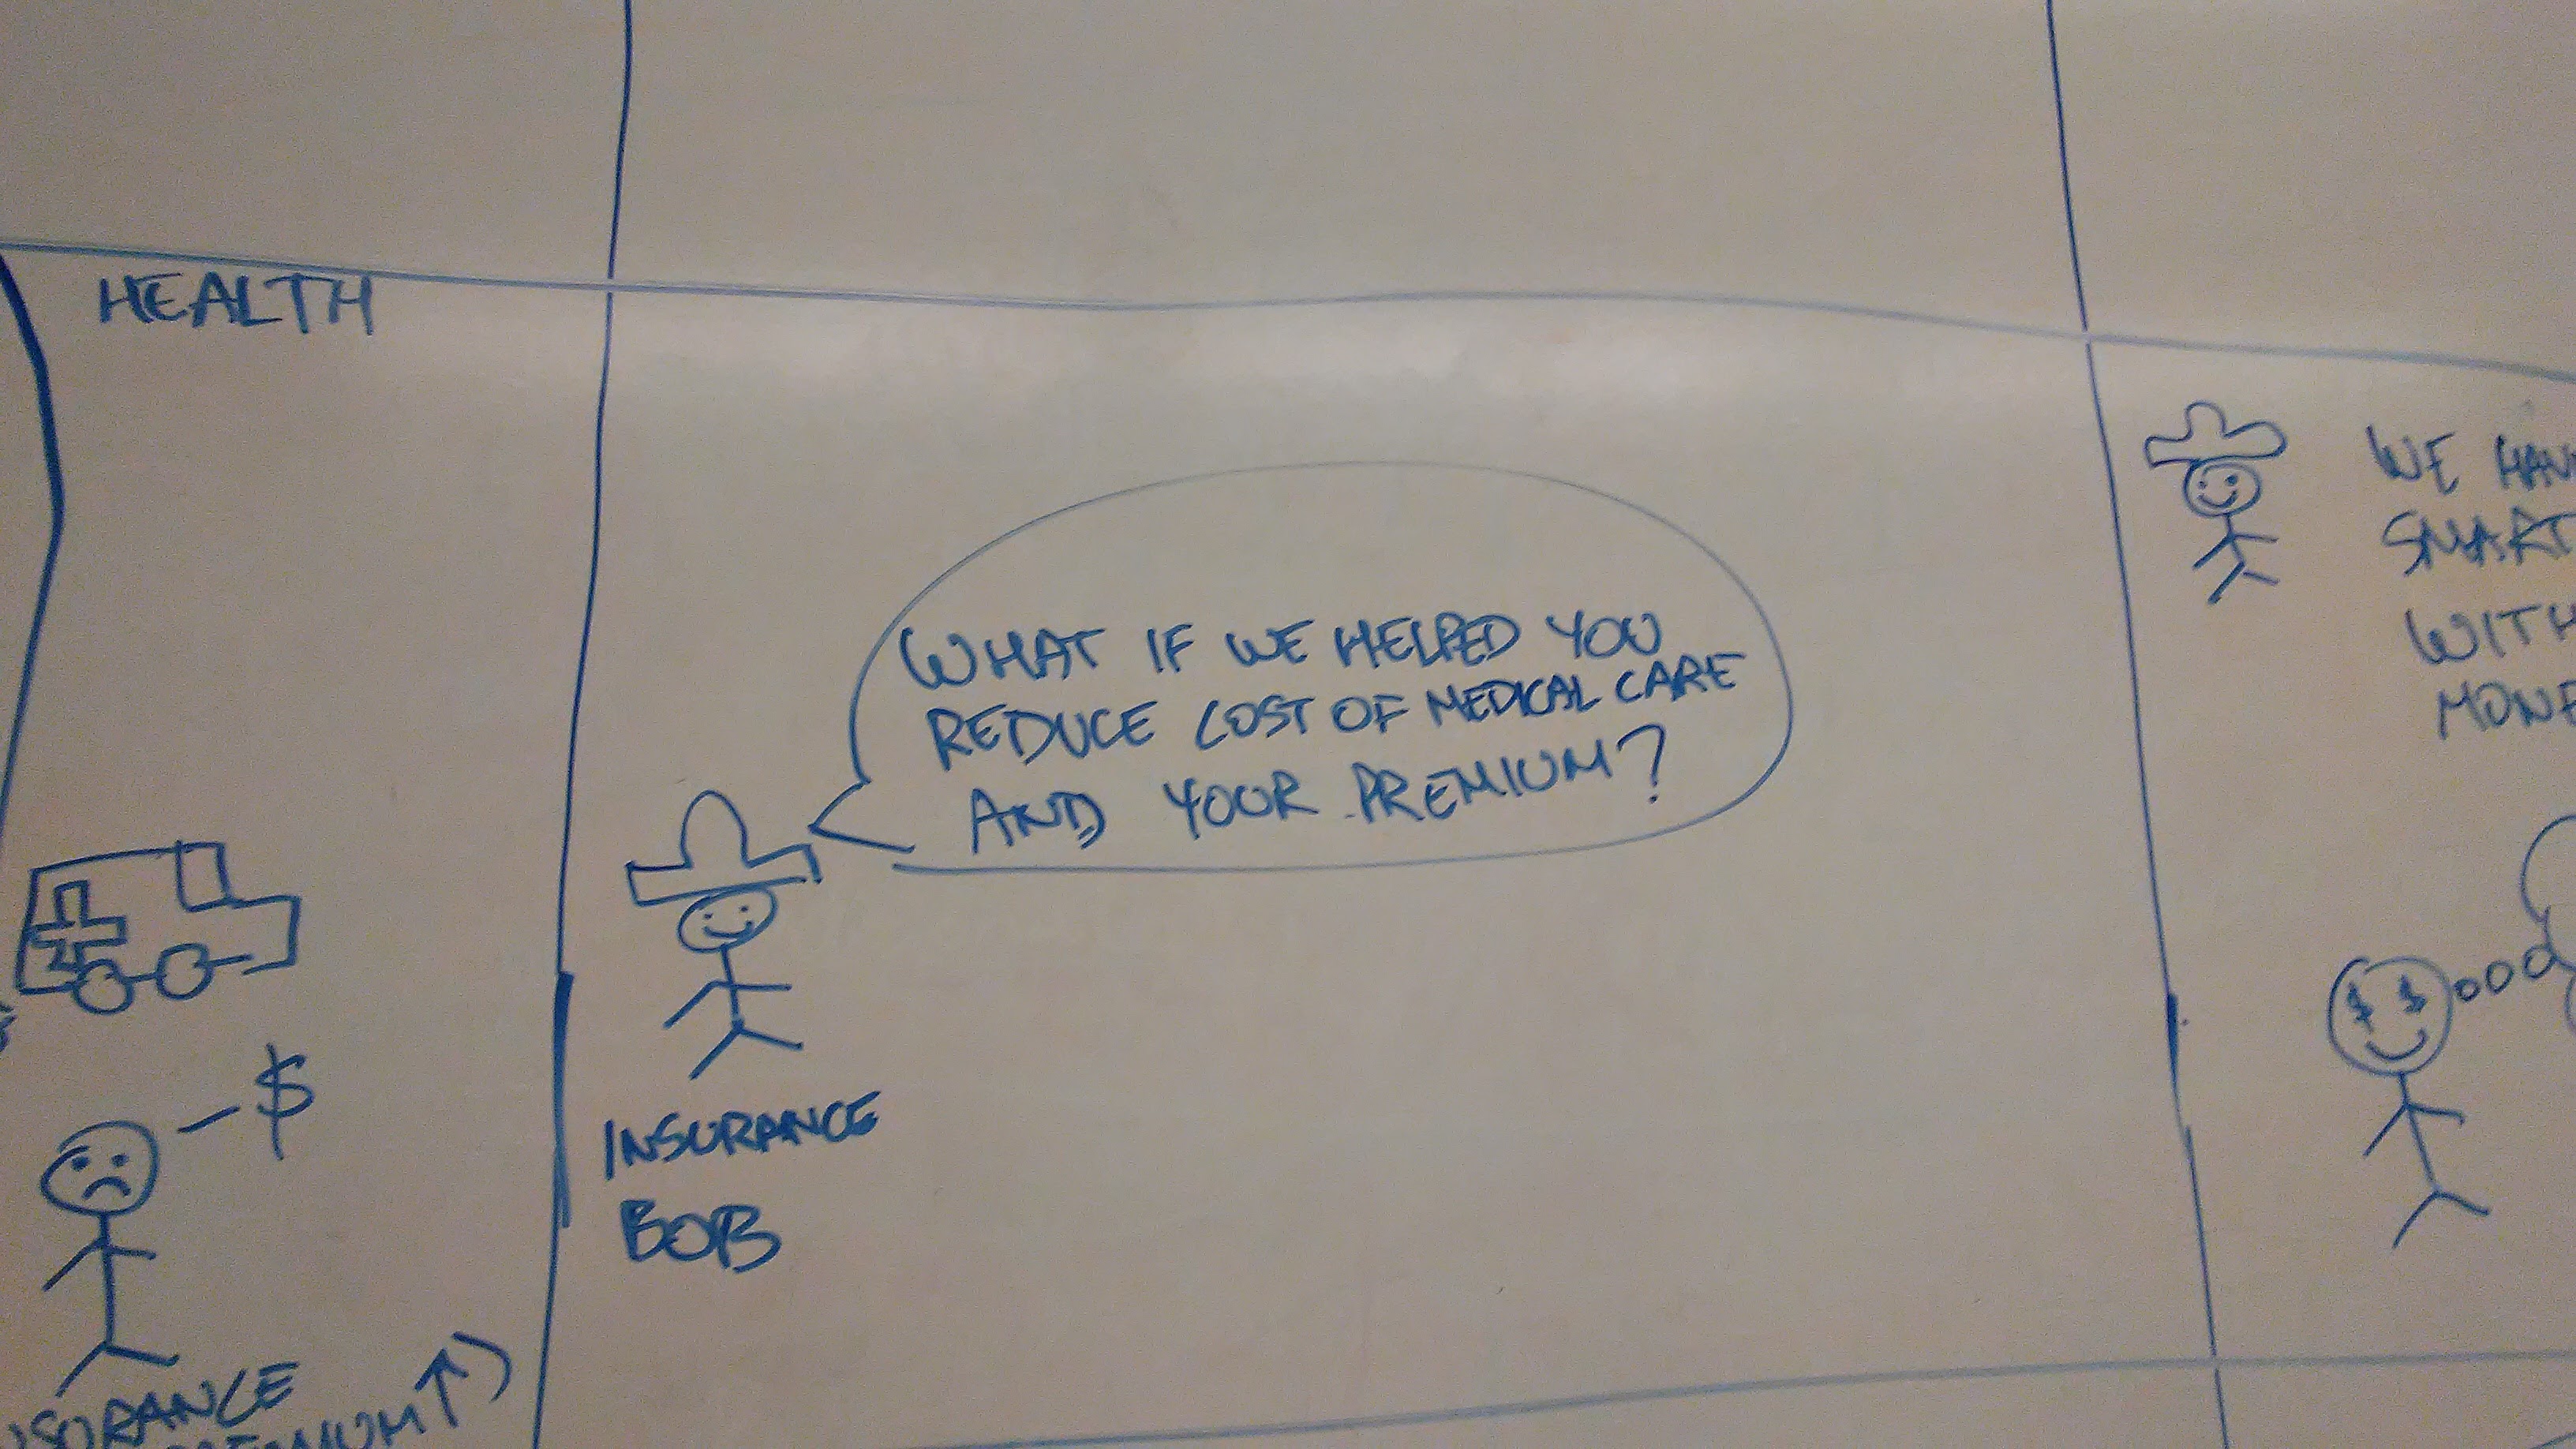 HEALTH
$
INSURANCE
WHAT IF WE HELPED YOU
REDUCE COST OF MEDICAL CARE
AND YOUR PREMIUM?
INSURANCE
BOB
WE
SMART
WITH
$ $